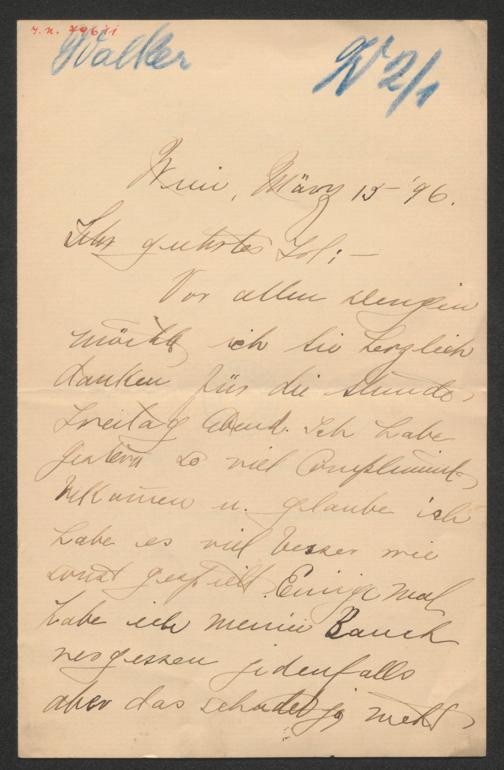 Walker
W 2/1
Wien, März 15 - '96.
Sehr geehrtes Frl; -
Vor allen Dengen
möchte ich Sie herzlich
danken für die Stunde
Freitag Abend. Ich habe
gestern so viel Compliment
bekommen u. glaube ich
habe es viel besser wie
sonst gespielt. Einige mal
habe ich meinen Bauch
vergessen jedenfalls
aber das schadet ja nicht